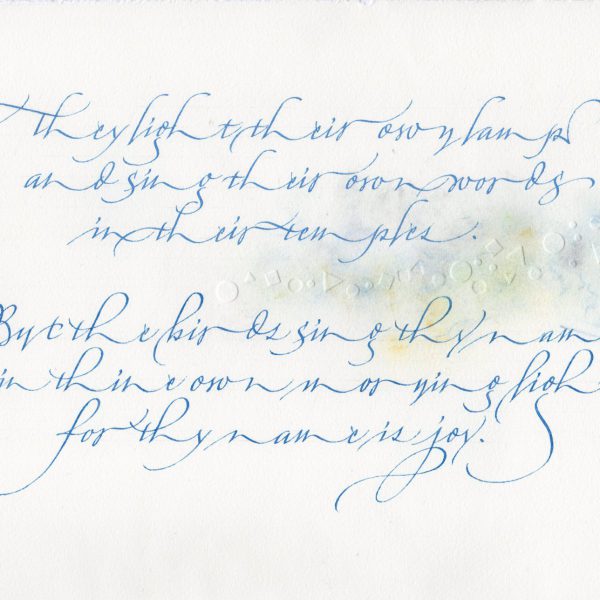 They light their own lamps
and sing their own words
in their temples.
But the birds sing thy name
in thine own morning light
for thy name is joy.